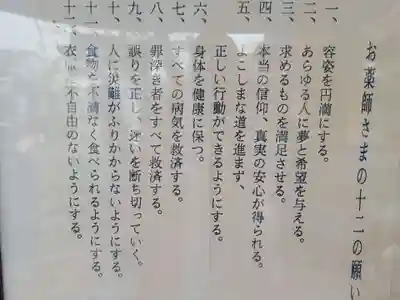 お薬師さまの十二の願い
一、容姿を円満にする。
二、あらゆる人に夢と希望を与える。
三、求めるものを満足させる。
四、本当の信仰、真実の安心が得られる。
五、よこしまな道を進まず、
正しい行動ができるようにする。
六、身体を健康に保つ。
七、すべての病気を救済する。
八、罪深き者をすべて救済する。
九、誤りを正し、迷いを断ち切っていく。
十、人に災難がふりかからないようにする。
十一、食物を不満なく食べられるようにする。
十二、衣 に不自由のないようにする。